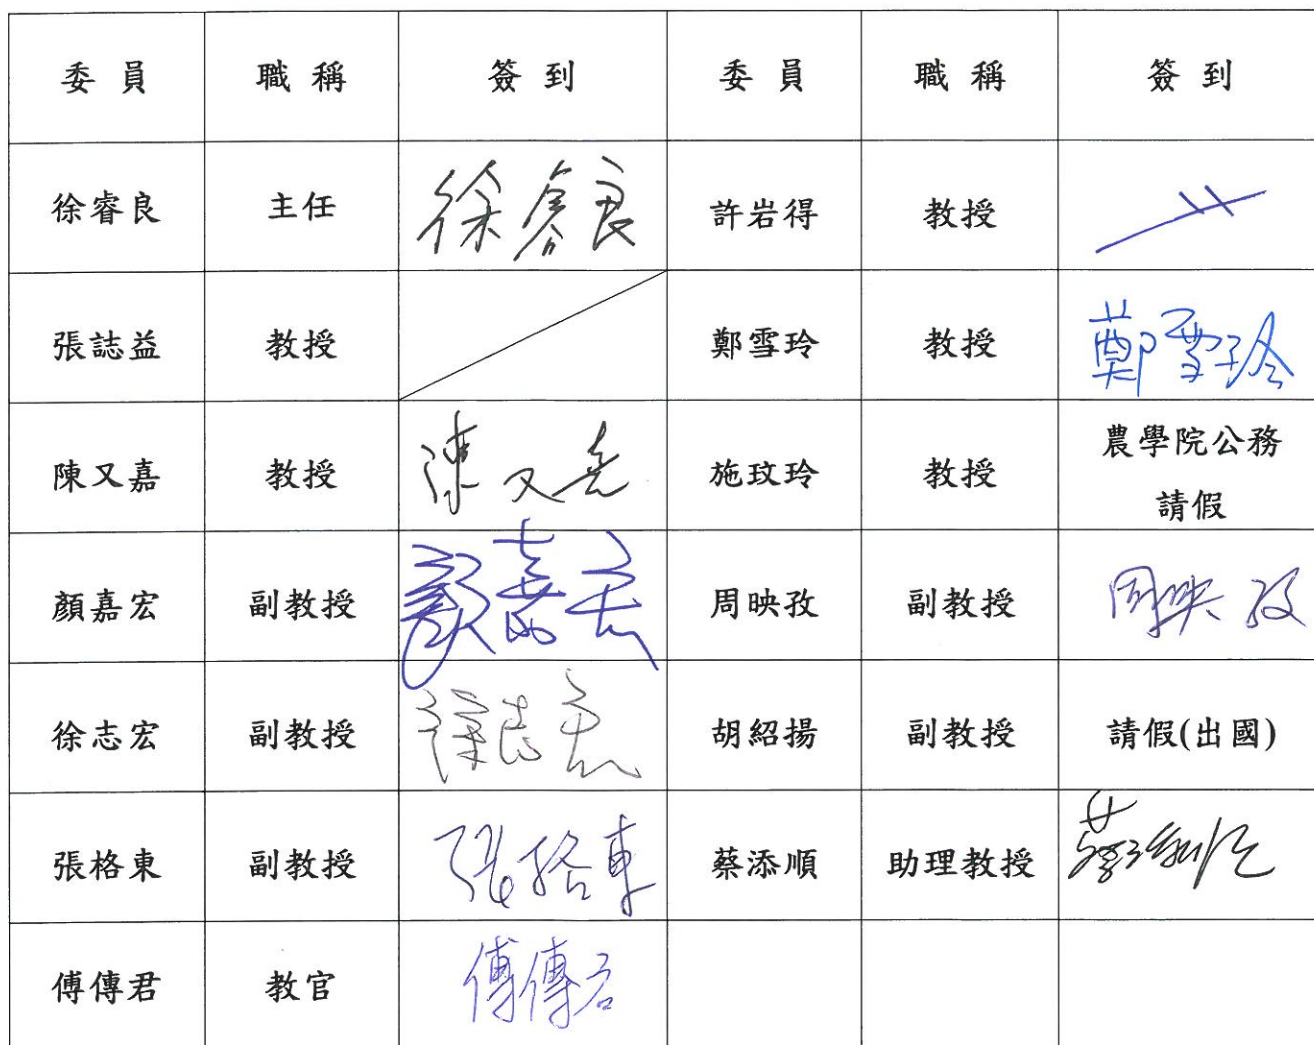 委員 職稱 簽到 委員 職稱 簽到
徐睿良 主任 徐睿良 許岩得 教授
張誌益 教授 鄭雪玲 教授 鄭雪玲
陳又嘉 教授 陳又嘉 施玟玲 教授 農學院公務
請假
顏嘉宏 副教授 顏嘉宏 周映孜 副教授 周映孜
徐志宏 副教授 徐志宏 胡紹揚 副教授 請假(出國)
張格東 副教授 張格東 蔡添順 助理教授
傅傳君 教官 傅傳君